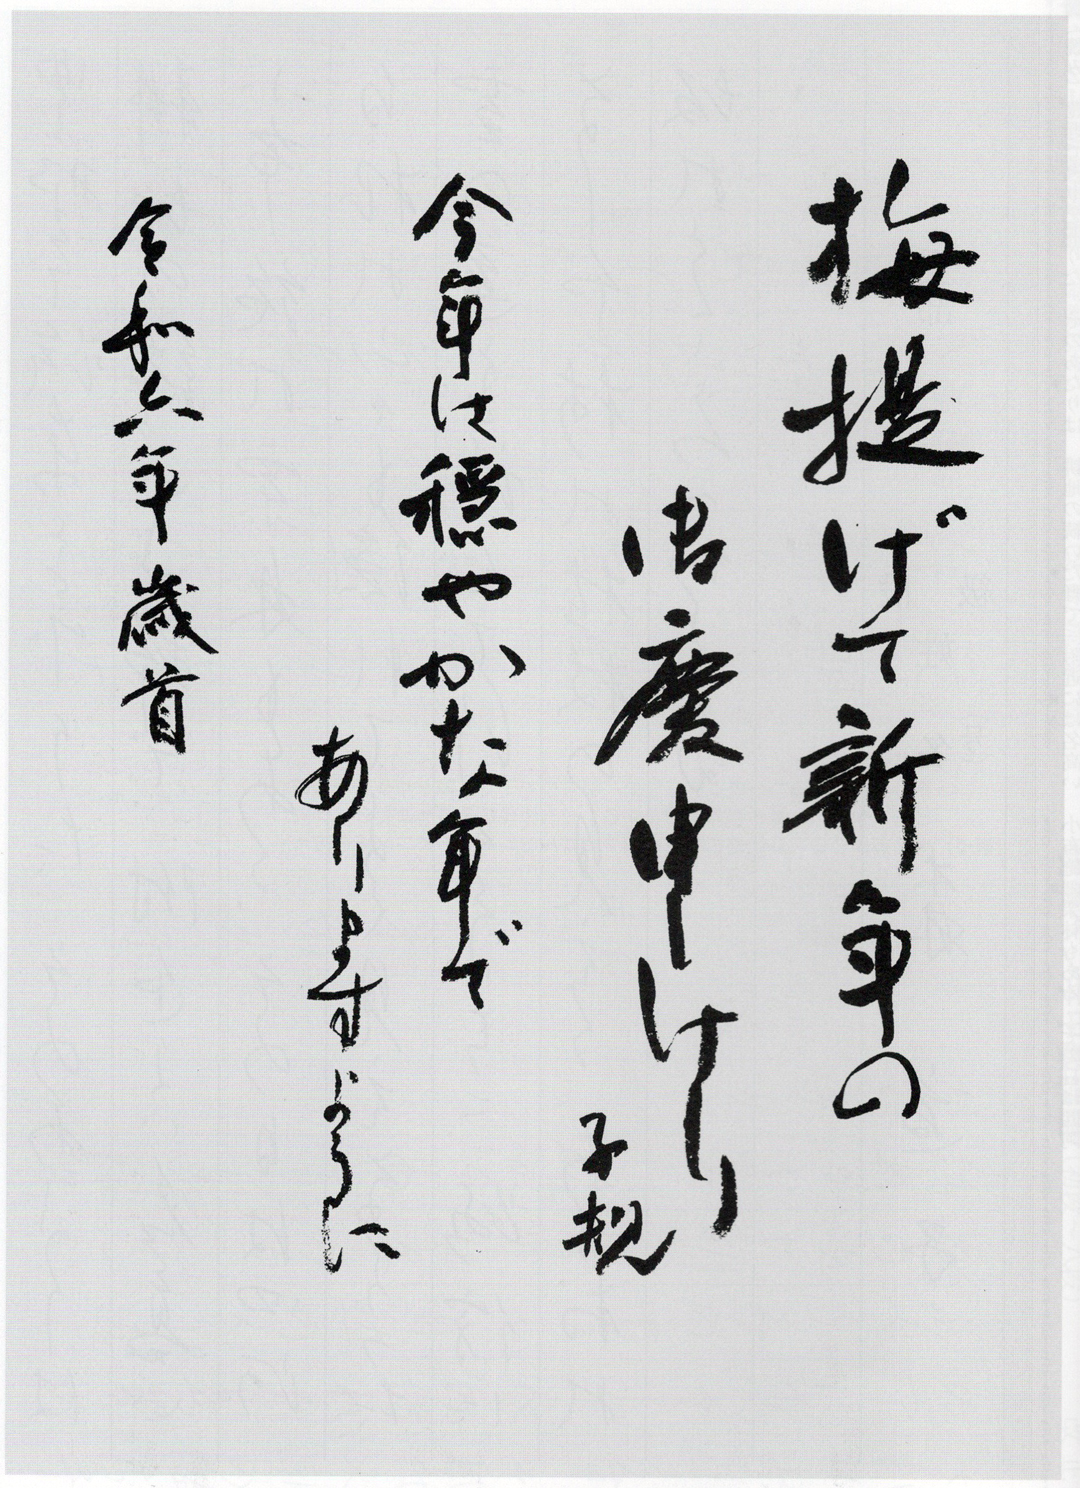 梅提げて新年の
御慶申しけり
子規
今年は穏やかな年で
ありますように
令和六年 歳首